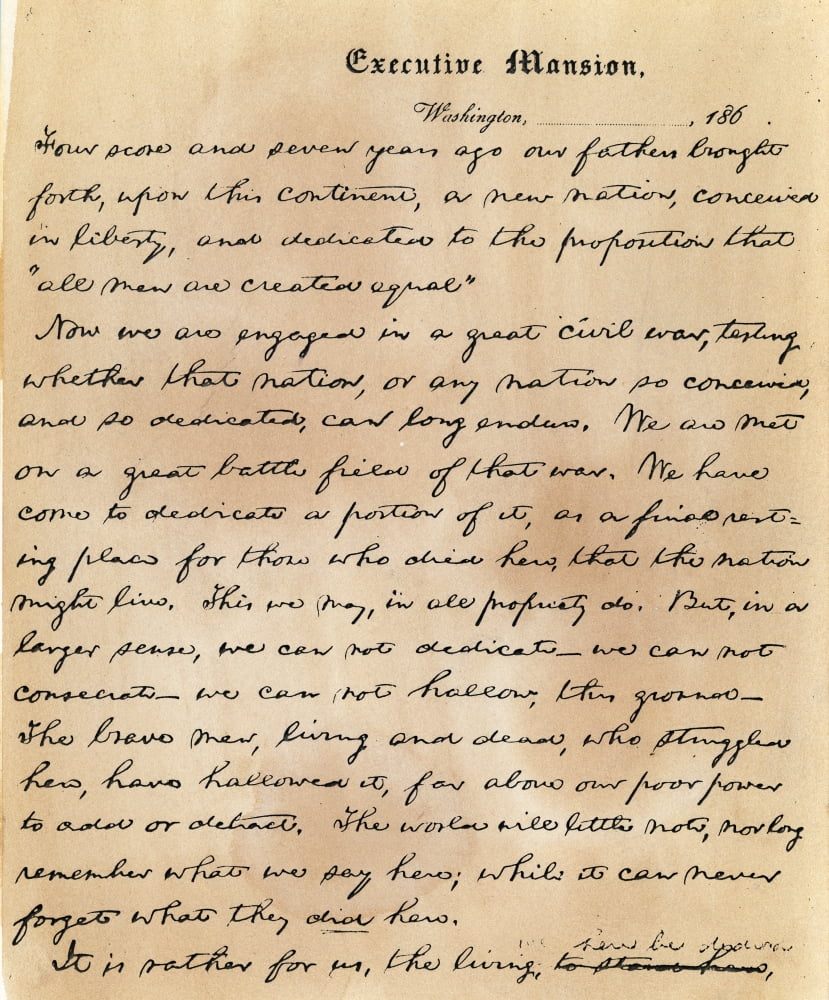 Executive Mansion,
Washington, , 186 .
Four score and seven years ago our fathers brought
forth, upon this continent, a new nation, conceived
in liberty, and dedicated to the proposition that
"all men are created equal"
Now we are engaged in a great civil war, testing
whether that nation, or any nation so conceived,
and so dedicated, can long endure. We are met
on a great battle field of that war. We have
come to dedicate a portion of it, as a final rest=
ing place for those who died here, that the nation
might live. This we may, in all propriety do. But, in a
larger sense, we can not dedicate— we can not
consecrate— we can not hallow, this ground—
The brave men, living and dead, who struggled
here, have hallowed it, far above our poor power
to add or detract. The world will little note, nor long
remember what we say here; while it can never
forget what they did here.
we here be dedica
It is rather for us, the living, to stand here,